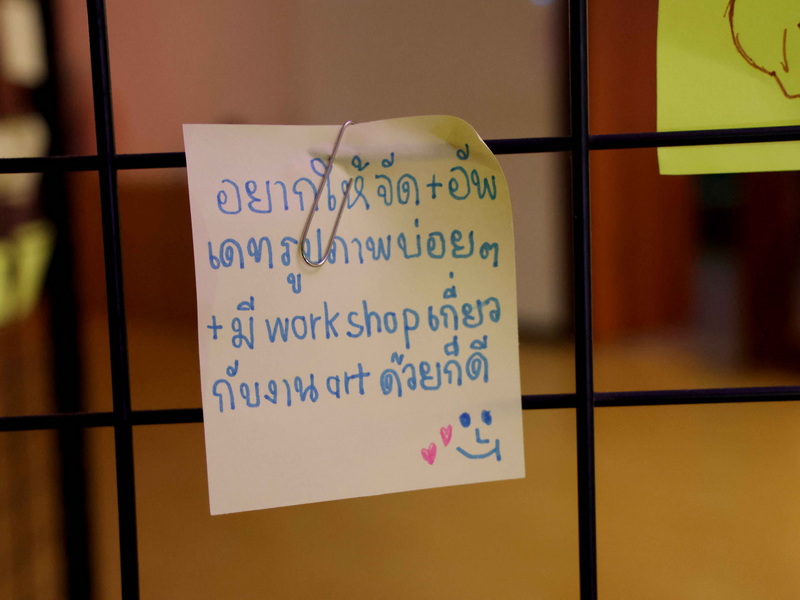 อยากให้จัด+อัพ
เดทรูปภาพบ่อยๆ
+มี workshop เกี่ยว
กับงาน art ด้วยก็ดี